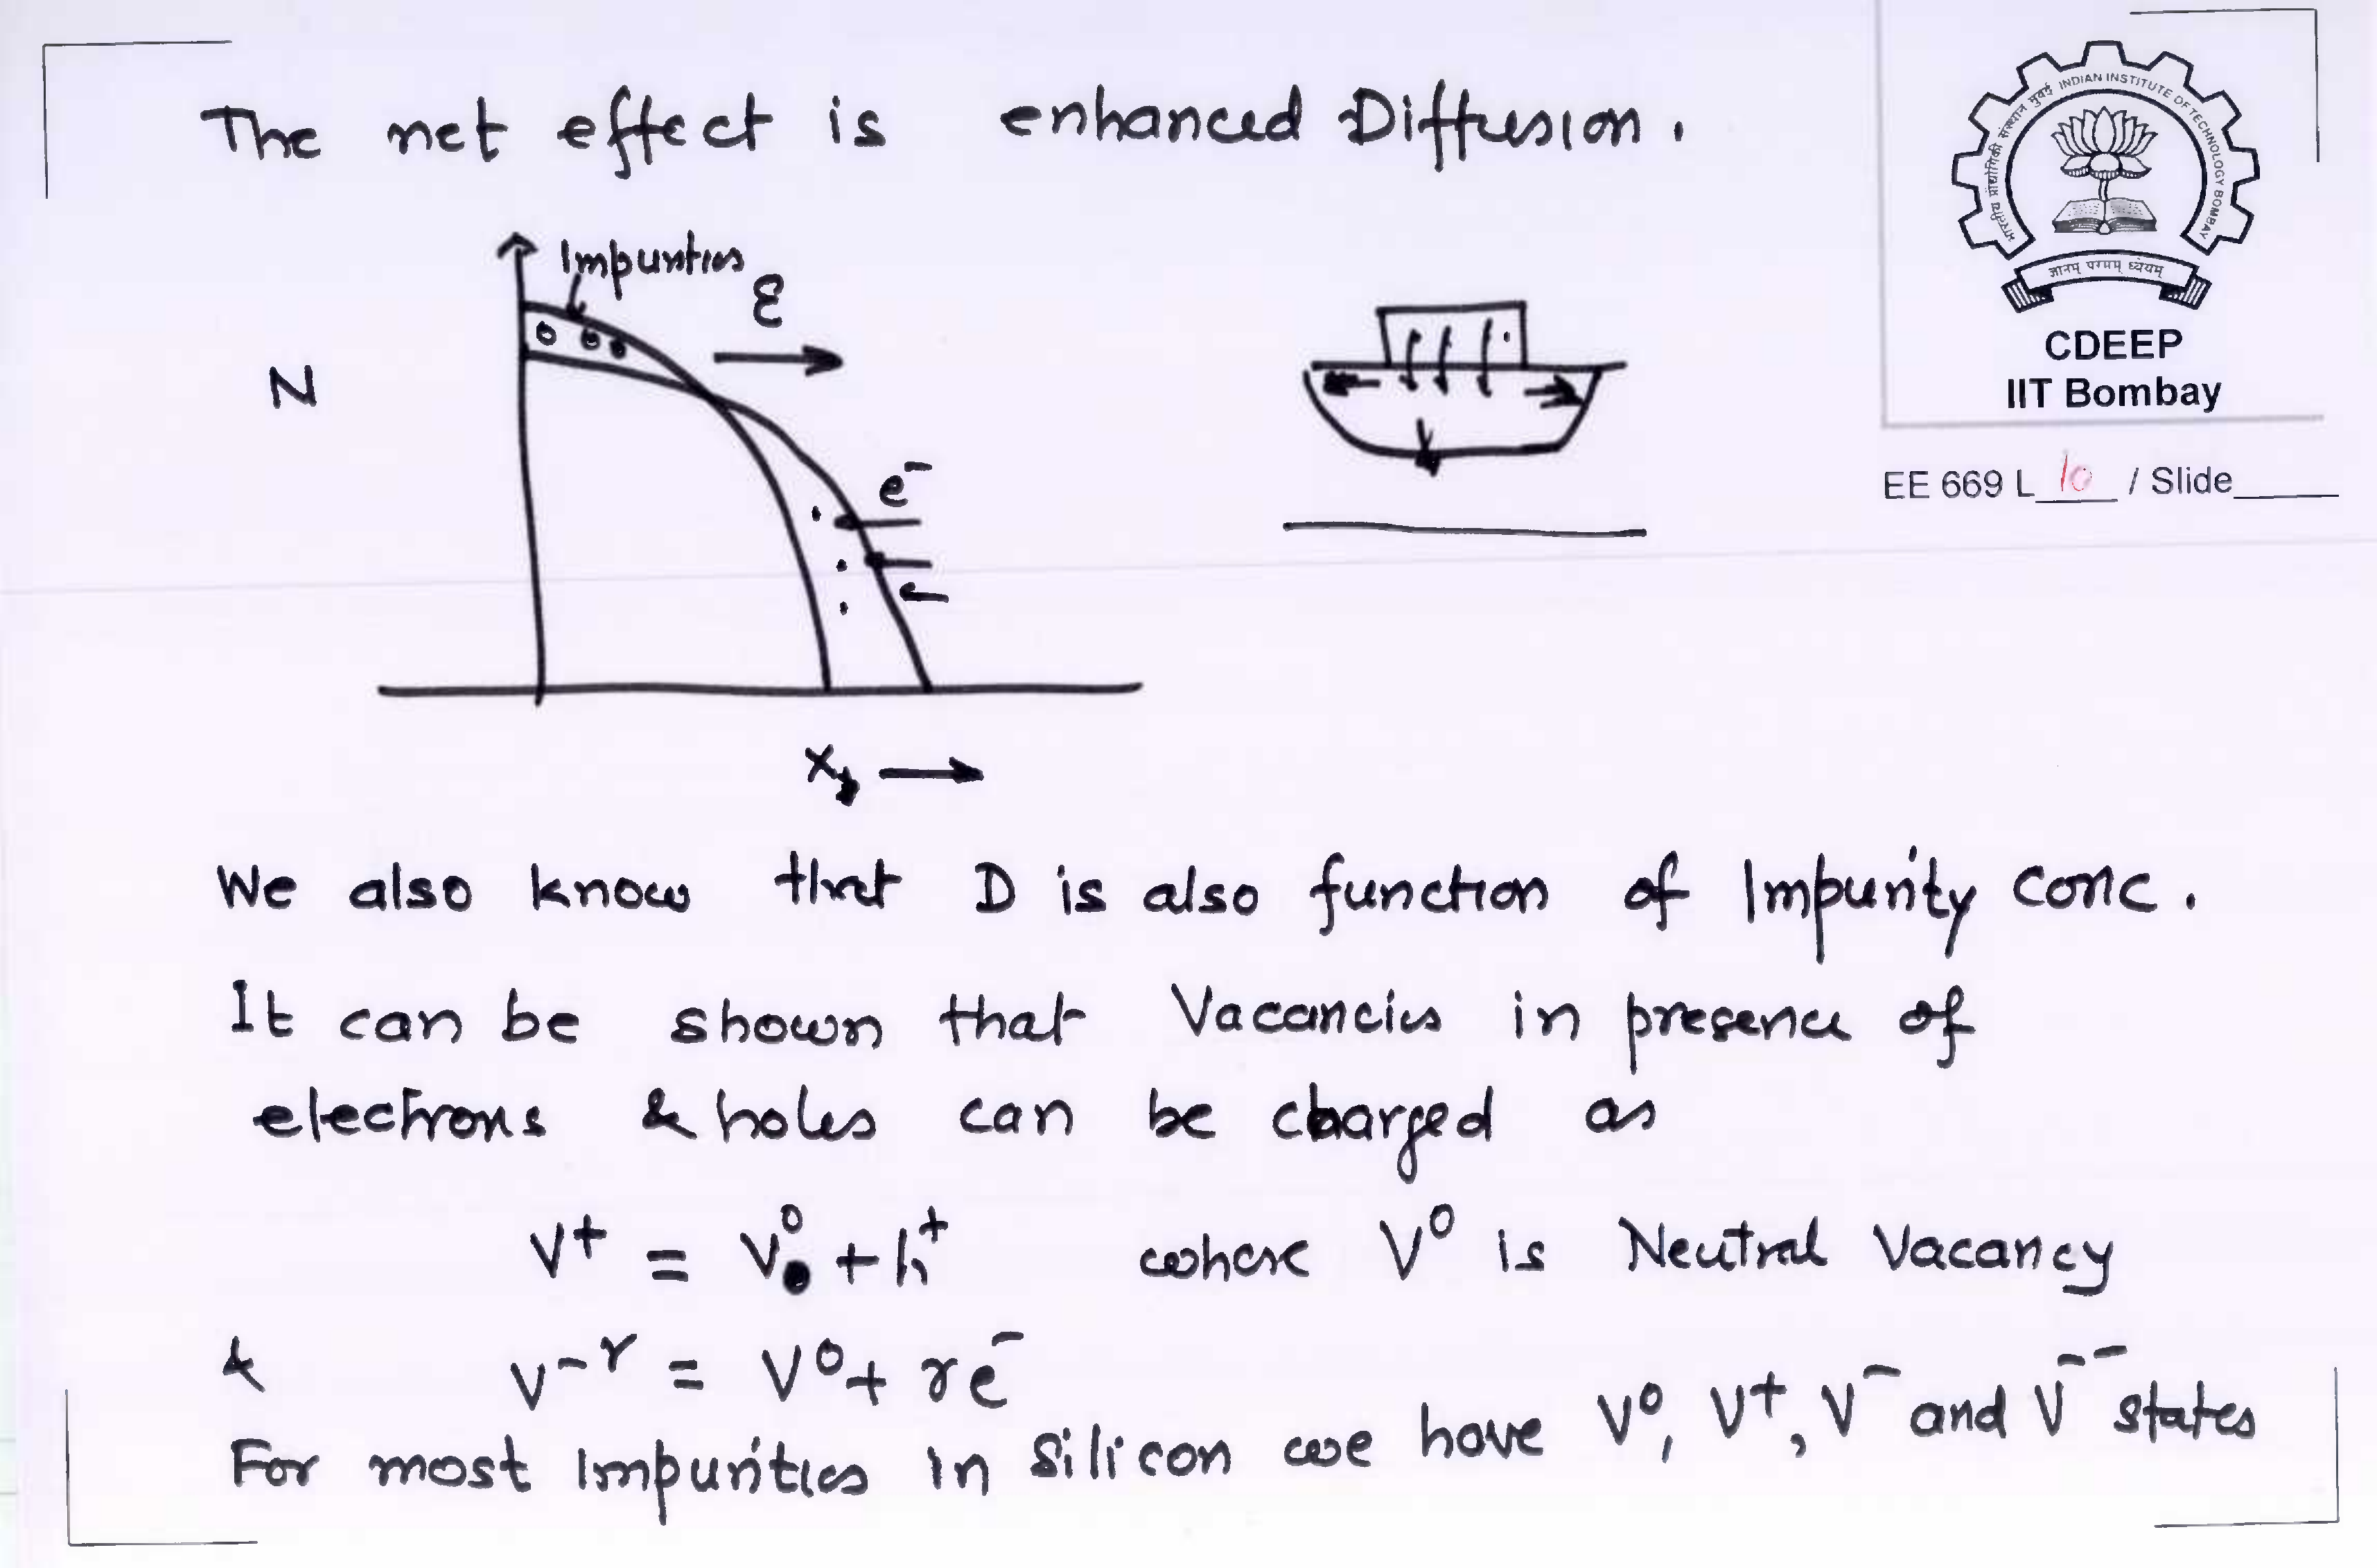 The net effect is enhanced Diffusion.
Impurities
ε
N
e⁻
Xj
भारतीय प्रौद्योगिकी संस्थान मुंबई INDIAN INSTITUTE OF TECHNOLOGY BOMBAY
ज्ञानम् परमम् ध्येयम्
CDEEP
IIT Bombay
EE 669 L 10 / Slide
We also know that D is also function of Impurity conc.
It can be shown that Vacancies in presence of
electrons & holes can be charged as
V⁺ = V⁰ + h⁺ where V⁰ is Neutral Vacancy
& V⁻ʳ = V⁰ + re⁻
For most Impurities in Silicon we have V⁰, V⁺, V⁻ and V⁻⁻ states